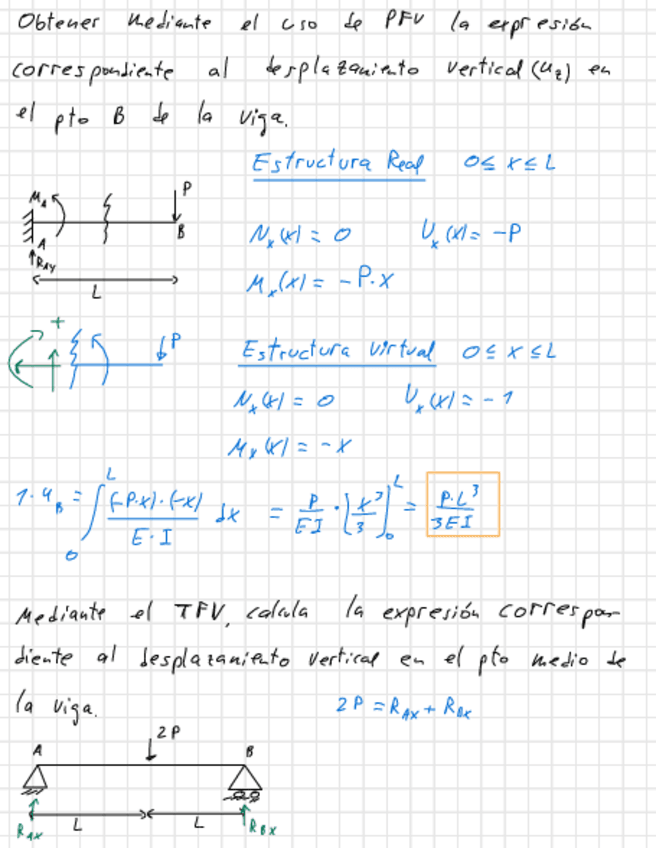 Obtener mediante el uso de PFV la expresión
correspondiente al desplazamiento vertical (u_z) en
el pto B de la viga.
Estructura Real 0 ≤ x ≤ L
M_A P
A B
R_AY
L
N_x(x) = 0 V_x(x) = -P
M_x(x) = -P·x
+
P
Estructura virtual 0 ≤ x ≤ L
N_x(x) = 0 V_x(x) = -1
M_x(x) = -x
1·u_B = ∫_0^L (-P·x)·(-x) / E·I dx = P/EI · [x^3/3]_0^L = P·L^3/3EI
Mediante el TFV, calcula la expresión correspon-
diente al desplazamiento vertical en el pto medio de
la viga. 2P = R_AX + R_BX
2P
A B
L L
R_AX R_BX